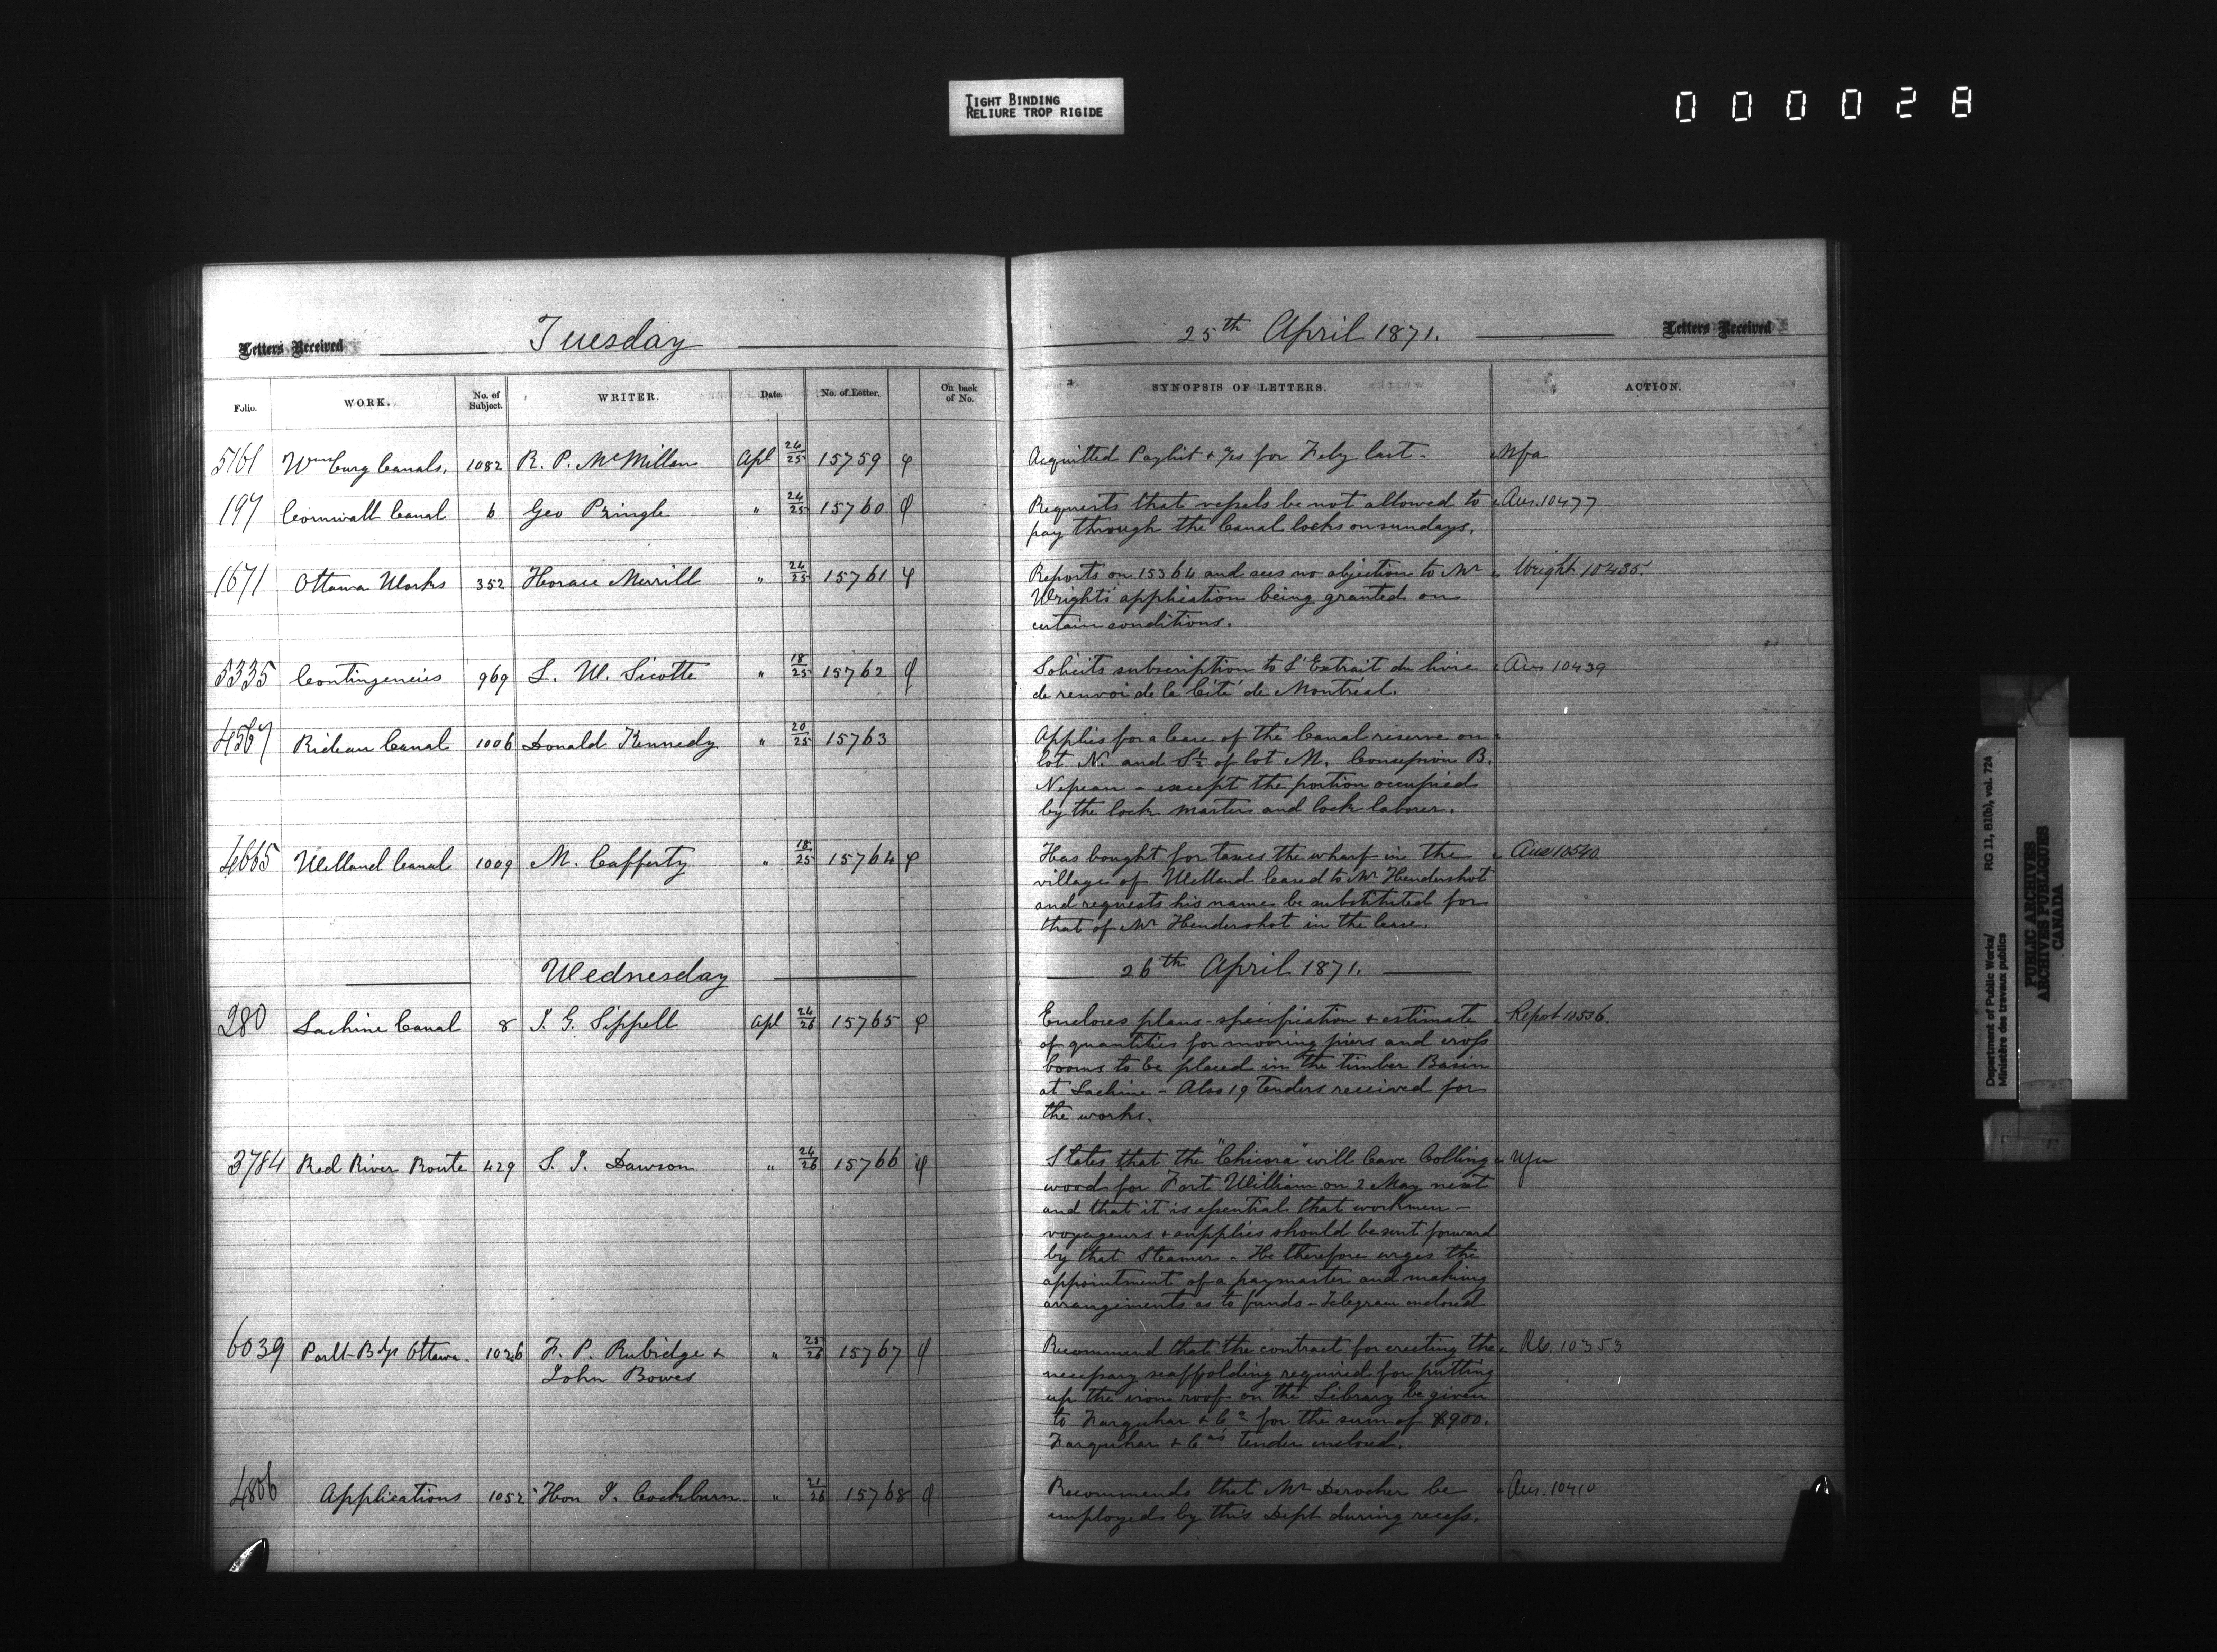 TIGHT BINDING
RELIURE TROP RIGIDE
000028
Letters Received Tuesday
Folio. WORK. No. of Subject. WRITER. Date. No. of Letter. On back of No.
5161 Wmsburg Canals, 1082 R. P. McMillan Apl 24/25 15759
197 Cornwall Canal 6 Geo Pringle " 24/25 15760
1671 Ottawa Works 352 Horace Merrill " 24/25 15761
5335 Contingencies 969 L. W. Sicotte " 18/25 15762
4567 Rideau Canal 1006 Donald Kennedy " 20/25 15763
4665 Welland Canal 1009 M. Cafferty " 18/25 15764
Wednesday
280 Lachine Canal 8 J. G. Sippell Apl 24/26 15765
3784 Red River Route 429 S. J. Dawson " 24/26 15766
6039 Parlt Bdgs Ottawa. 1026 F. P. Rubidge +
John Bowes " 25/26 15767
4806 Applications 1052 Hon J. Cockburn " 21/26 15768
25th April 1871. Letters Received
SYNOPSIS OF LETTERS. ACTION.
Acquitted Paylist + for Feby last - Nfa
Requests that vessels be not allowed to Ans. 10477
pay through the Canal locks on sundays.
Reports on 15364 and sees no objection to Mr Wright 10435.
Wright's application being granted on
certain conditions.
Solicits subscription to L'Extrait du livre Ans 10439
de renvoi de la Cité de Montréal.
Applies for a lease of the Canal reserve on
lot N. and S½ of lot M, Concession B.
Nepean - except the portion occupied
by the lock master and lock laborer.
Has bought for taxes the wharf in the Ans 10540
village of Welland leased to Mr Hendershot
and requests his name be substituted for
that of Mr Hendershot in the lease.
26th April 1871.
Encloses plans - specification + estimate Report 10536.
of quantities for mooring piers and cross
booms to be placed in the timber Basin
at Lachine - Also 19 Tenders received for
the works.
States that the "Chicora" will leave Colling
wood for Fort William on 2 May next
and that it is essential that workmen -
voyageurs + supplies should be sent forward
by that Steamer - He therefore urges the
appointment of a paymaster and making
arrangements as to funds - Telegram enclosed
Recommend that the contract for erecting the 10353
necessary scaffolding required for putting
up the iron roof on the Library be given
to Farquhar + Co for the sum of $900.
Farquhar + Co's Tender enclosed.
Recommends that Mr Derocher be Ans. 10410
employed by this Dept during recess.
Department of Public Works/ RG 11, B1(b), vol. 724
Ministère des travaux publics
PUBLIC ARCHIVES
ARCHIVES PUBLIQUES
CANADA